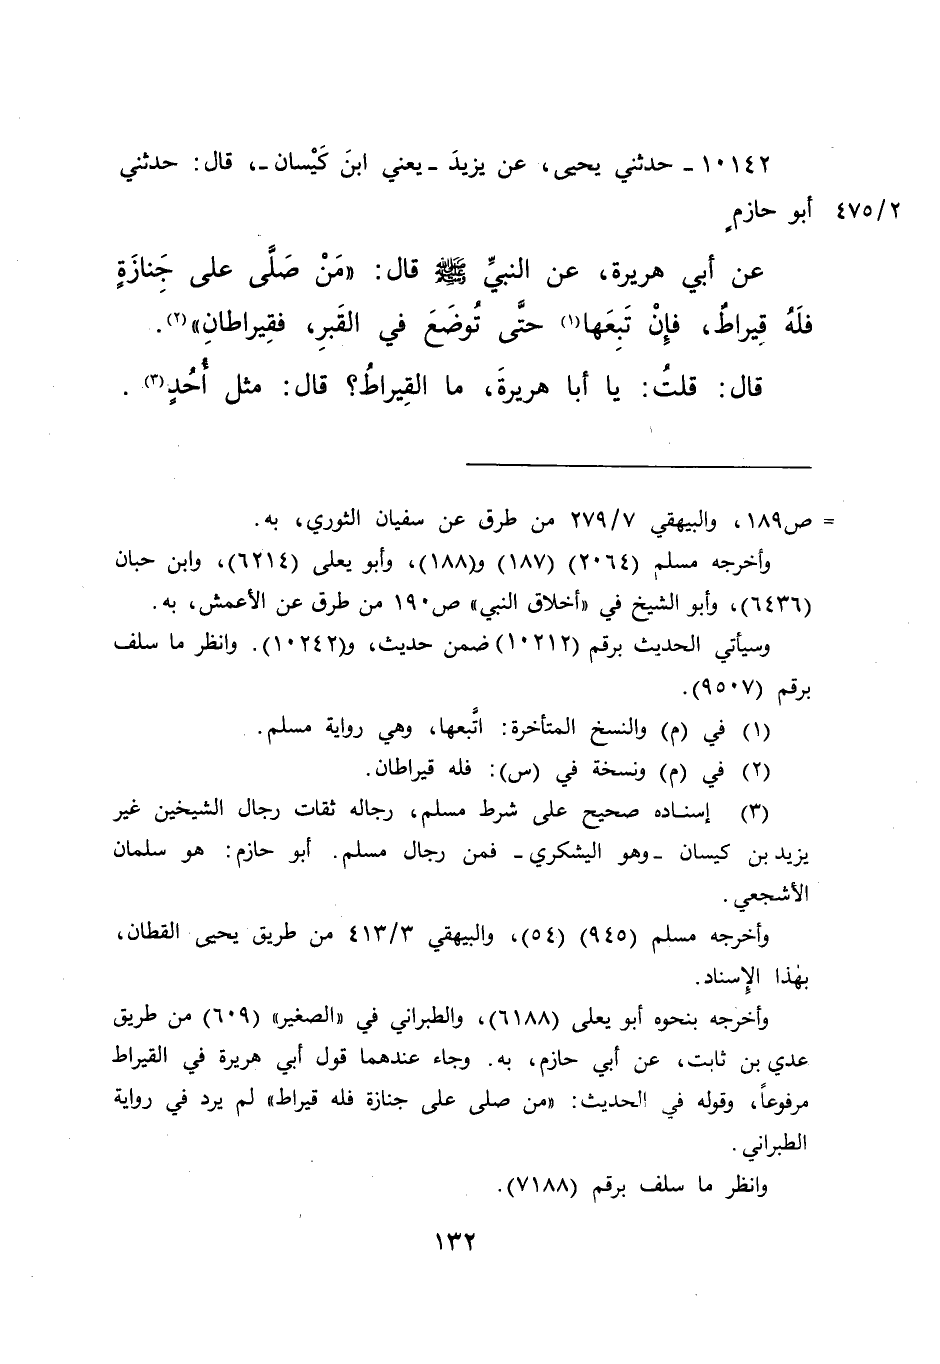 ١٠١٤٢ - حدثني يحيى، عن يزيدَ -يعني ابنَ كَيْسان-، قال: حدثني
٤٧٥/٢ أبو حازمٍ
عن أبي هريرة، عن النبيِّ ﷺ قال: «مَنْ صَلَّى على جَنازَةٍ
فلَهُ قِيراطٌ، فإِنْ تَبِعَها(١) حتَّى تُوضَعَ في القَبرِ، فقِيراطانِ»(٢).
قال: قلتُ: يا أبا هريرةَ، ما القِيراطُ؟ قال: مثل أُحُدٍ(٣).
= ص١٨٩، والبيهقي ٢٧٩/٧ من طرق عن سفيان الثوري، به.
وأخرجه مسلم (٢٠٦٤) (١٨٧) و(١٨٨)، وأبو يعلى (٦٢١٤)، وابن حبان
(٦٤٣٦)، وأبو الشيخ في «أخلاق النبي» ص١٩٠ من طرق عن الأعمش، به.
وسيأتي الحديث برقم (١٠٢١٢) ضمن حديث، و(١٠٢٤٢). وانظر ما سلف
برقم (٩٥٠٧).
(١) في (م) والنسخ المتأخرة: اتَّبعها، وهي رواية مسلم.
(٢) في (م) ونسخة في (س): فله قيراطان.
(٣) إسناده صحيح على شرط مسلم، رجاله ثقات رجال الشيخين غير
يزيد بن كيسان -وهو اليشكري- فمن رجال مسلم. أبو حازم: هو سلمان
الأشجعي.
وأخرجه مسلم (٩٤٥) (٥٤)، والبيهقي ٤١٣/٣ من طريق يحيى القطان،
بهٰذا الإسناد.
وأخرجه بنحوه أبو يعلى (٦١٨٨)، والطبراني في «الصغير» (٦٠٩) من طريق
عدي بن ثابت، عن أبي حازم، به. وجاء عندهما قول أبي هريرة في القيراط
مرفوعاً، وقوله في الحديث: «من صلى على جنازة فله قيراط» لم يرد في رواية
الطبراني.
وانظر ما سلف برقم (٧١٨٨).
١٣٢